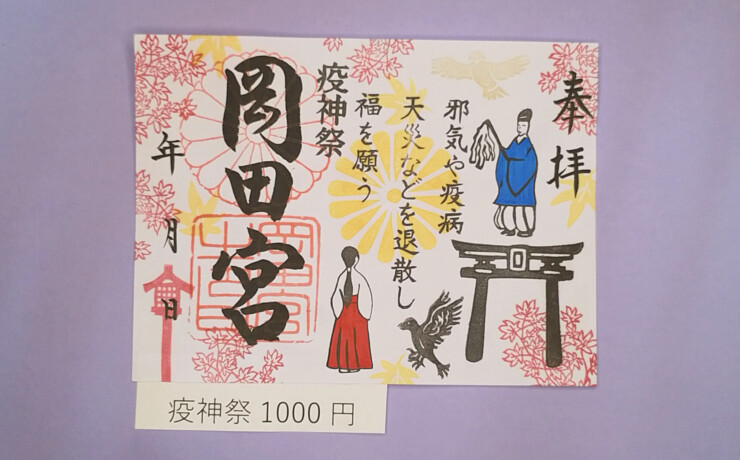 奉拝
邪気や疫病
天災などを退散し
福を願う
疫神祭
岡田宮
年 月 日
疫神祭 1000 円